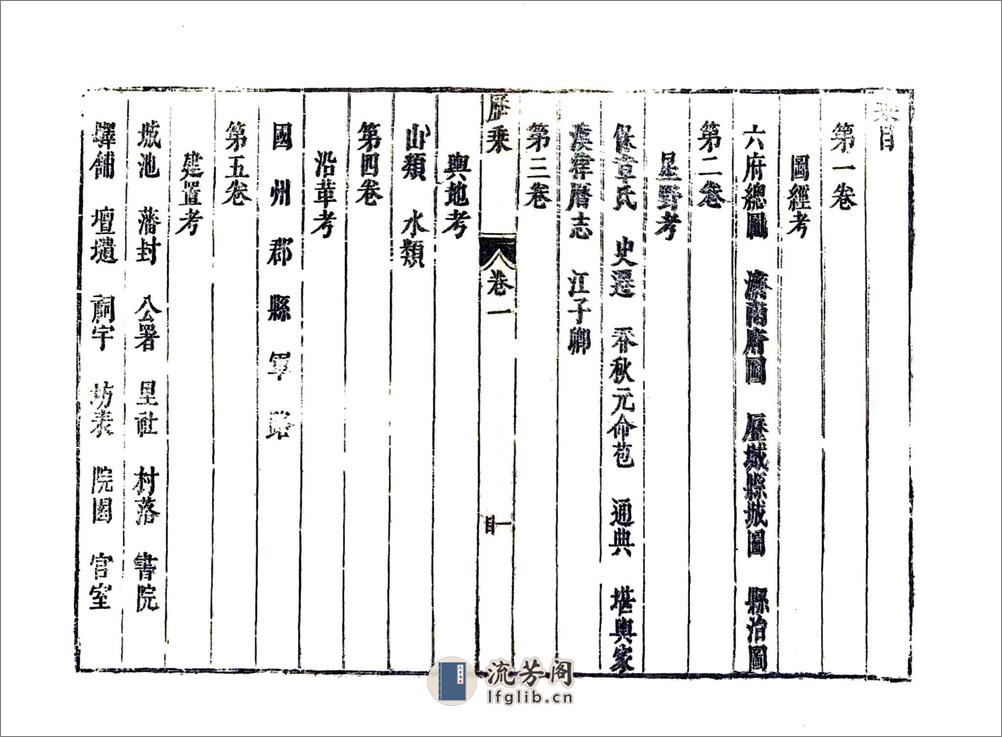 乘目
第一卷
圖經考
六府總圖 濟南府圖 歷城縣城圖 縣治圖
第二卷
星野考
保章氏 史遷 春秋元命苞 通典 堪輿家
漢律曆志 江子卿
第三卷
歷乘 卷一 目 一
輿地考
山類 水類
第四卷
沿革考
國州郡縣軍路
第五卷
建置考
城池 藩封 公署 里社 村落 書院
驛舖 壇壝 祠宇 坊表 院園 宮室
流芳阁
lfglib.cn